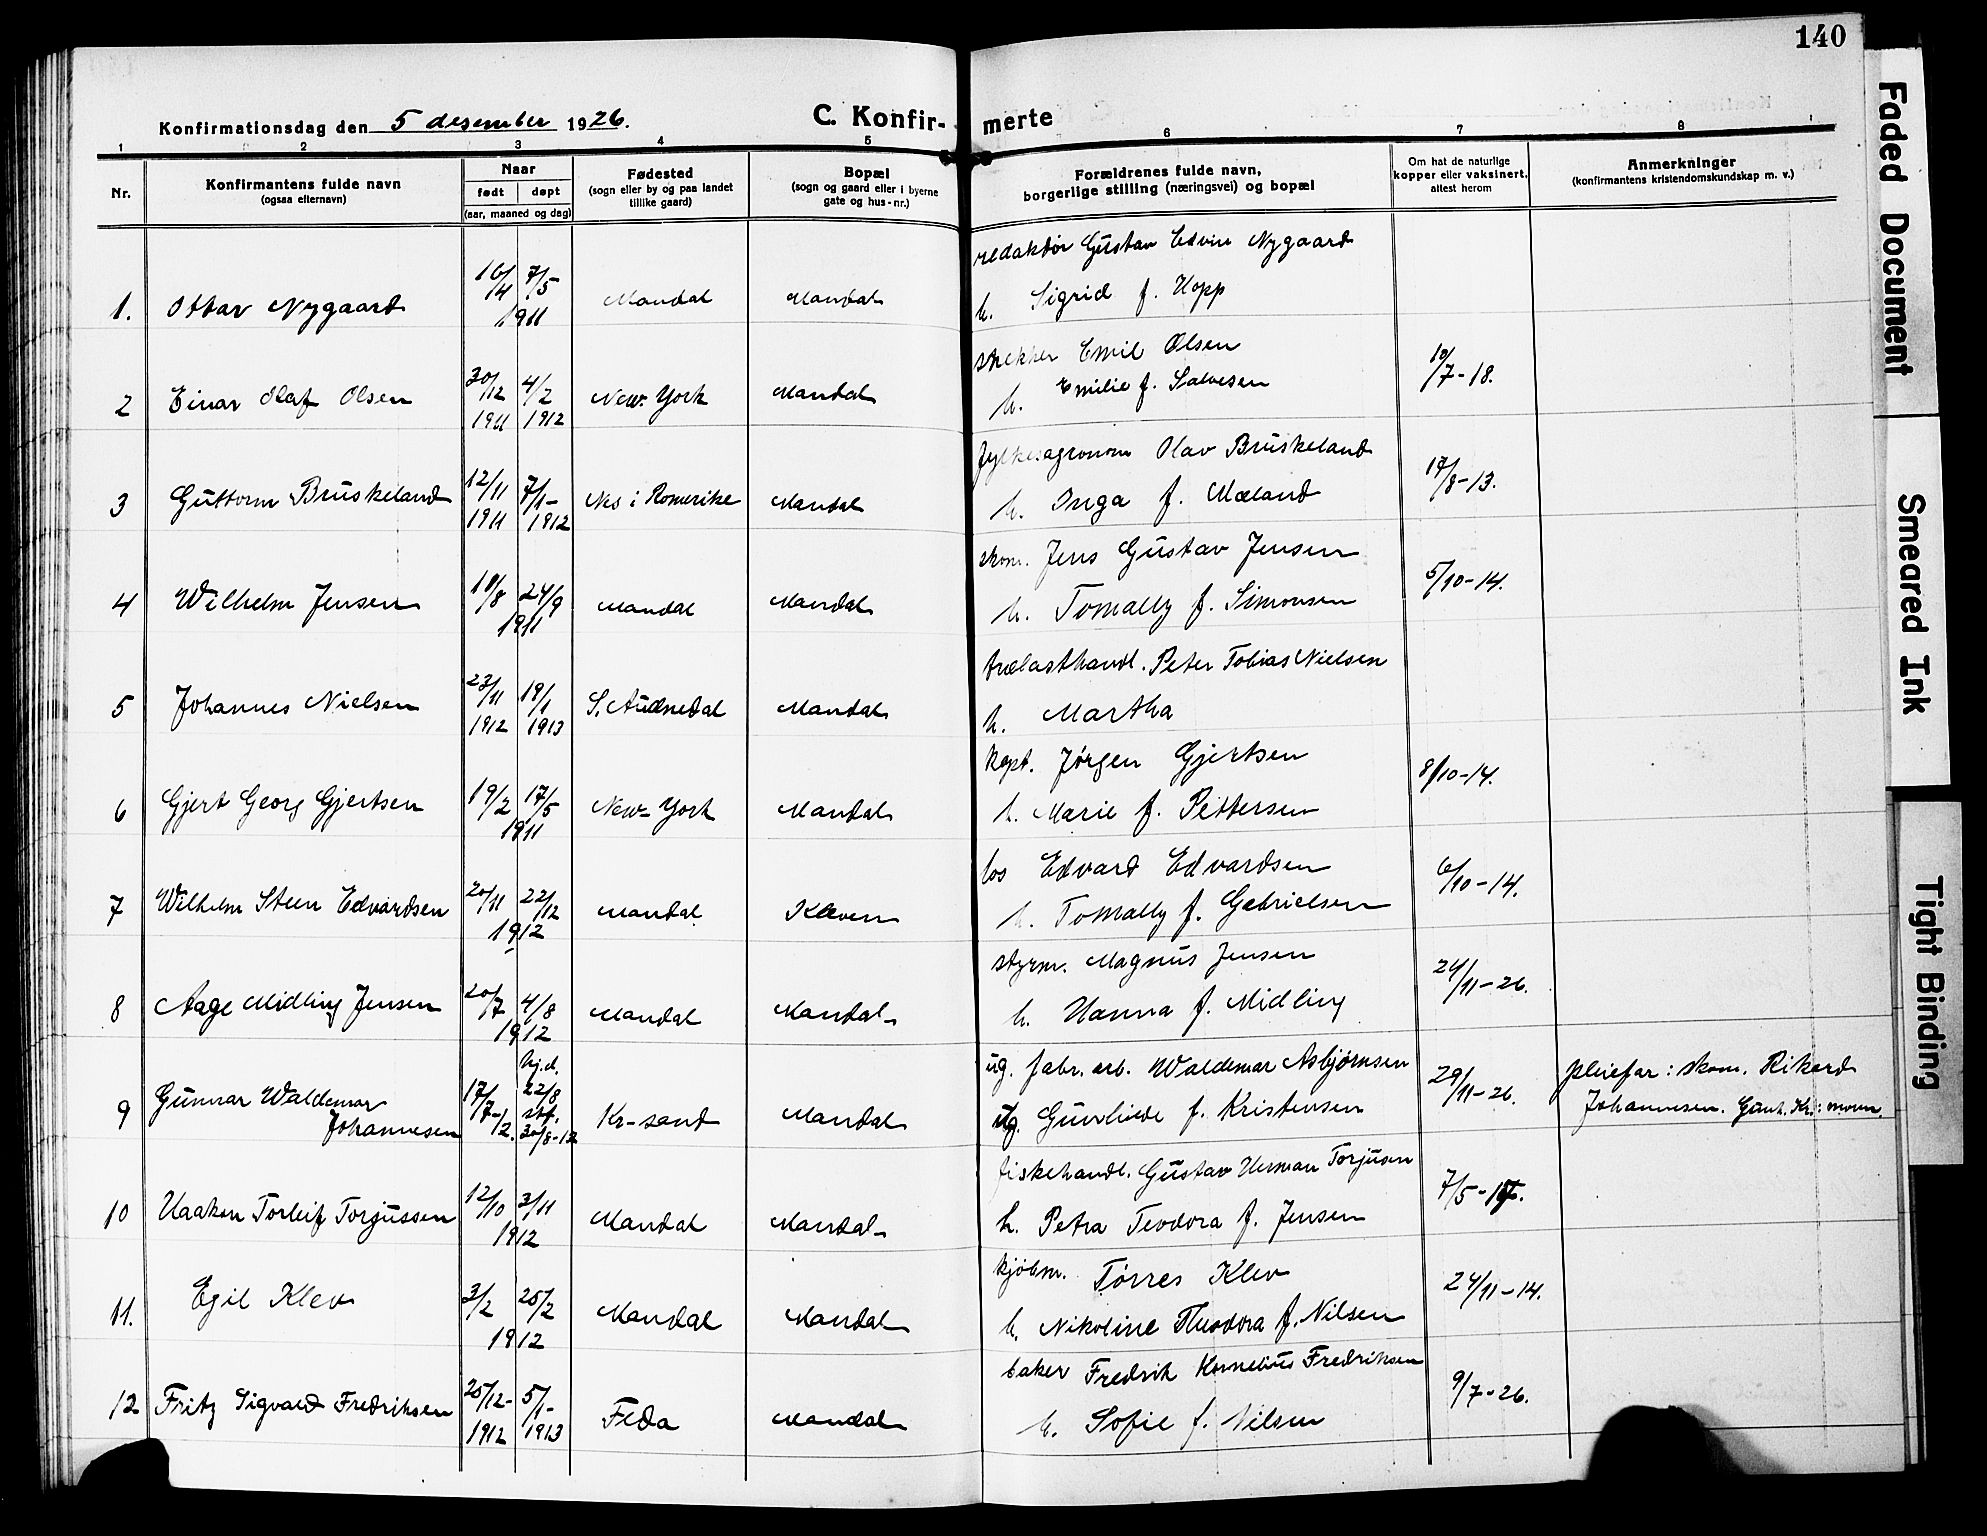 140
Konfirmationsdag den 5 desember 1926.
C. Konfirmerte
1 2 3 4 5 6 7 8
Nr.
Konfirmantens fulde navn
(ogsaa efternavn)
Naar
født døpt
(aar, maaned og dag)
Fødested
(sogn eller by og paa landet
tillike gaard)
Bopæl
(sogn og gaard eller i byerne
gate og hus-nr.)
Forældrenes fulde navn,
borgerlige stilling (næringsvei) og bopæl
Om hat de naturlige
kopper eller vaksinert,
attest herom
Anmerkninger
(konfirmantens kristendomskundskap m. v.)
redaktør Gustav Edvin Nygaard
1. Ottar Nygaard 16/4 7/5 1911 Mandal Mandal
h. Sigrid f. Hopp
Emil Olsen
2 Einar Olaf Olsen 30/12 1911 4/2 1912 New-York Mandal 10/7-18.
h. Emilie f. Salvesen
fylkesagronom Olav Bruskeland
3 Guttorm Bruskeland 12/11 1911 7/1- 1912 Nes i Romerike Mandal 17/8-13.
h. Inga f. Mæland
skom. Jens Gustav Jensen
4 Wilhelm Jensen 18/8 24/9 1911 Mandal Mandal 5/10-14.
h. Tomally f. Simonsen
trælasthandl. Peter Tobias Nielsen
5 Johannes Nielsen 23/11 1912 19/1 1913 S. Audnedal Mandal
h. Martha
kapt. Jørgen Gjertsen
6 Gjert Georg Gjertsen 19/2 17/5 1911 New-York Mandal 8/10-14.
h. Marie f. Pettersen
los Edvard Edvardsen
7 Wilhelm Steen Edvardsen 20/11 22/12 1912 Mandal Kleven 6/10-14.
h. Tomally f. Gabrielsen
styrm. Magnus Jensen
8 Aage Midling Jensen 20/7 4/8 1912 Mandal Mandal 24/11-26.
h. Hanna f. Midling
ug. fabr. arb. Waldemar Asbjørnsen
9 Gunnar Waldemar
Johannesen 17/7-12. hj.d. 22/8 stf. 30/8-12 Kr-sand Mandal 29/11-26.
Gunhilde f. Kristensen
pleiefar: skom. Rikard
Johannesen.
fiskehandl. Gustav Herman Torjusen
10 Haakon Torleif Torjussen 12/10 3/11 1912 Mandal Mandal
h. Petra Teodora f. Jensen
kjøbm. Tørres Klev
11. Egil Klev 3/2 25/2 1912 Mandal Mandal 24/11-14.
h. Nikoline Theodora f. Nilsen
baker Fredrik Kornelius Fredriksen
12 Fritz Sigvald Fredriksen 25/12- 1912 5/1- 1913 Feda Mandal 9/7-26.
h. Sofie f. Nilsen
Faded Document
Smeared Ink
Tight Binding